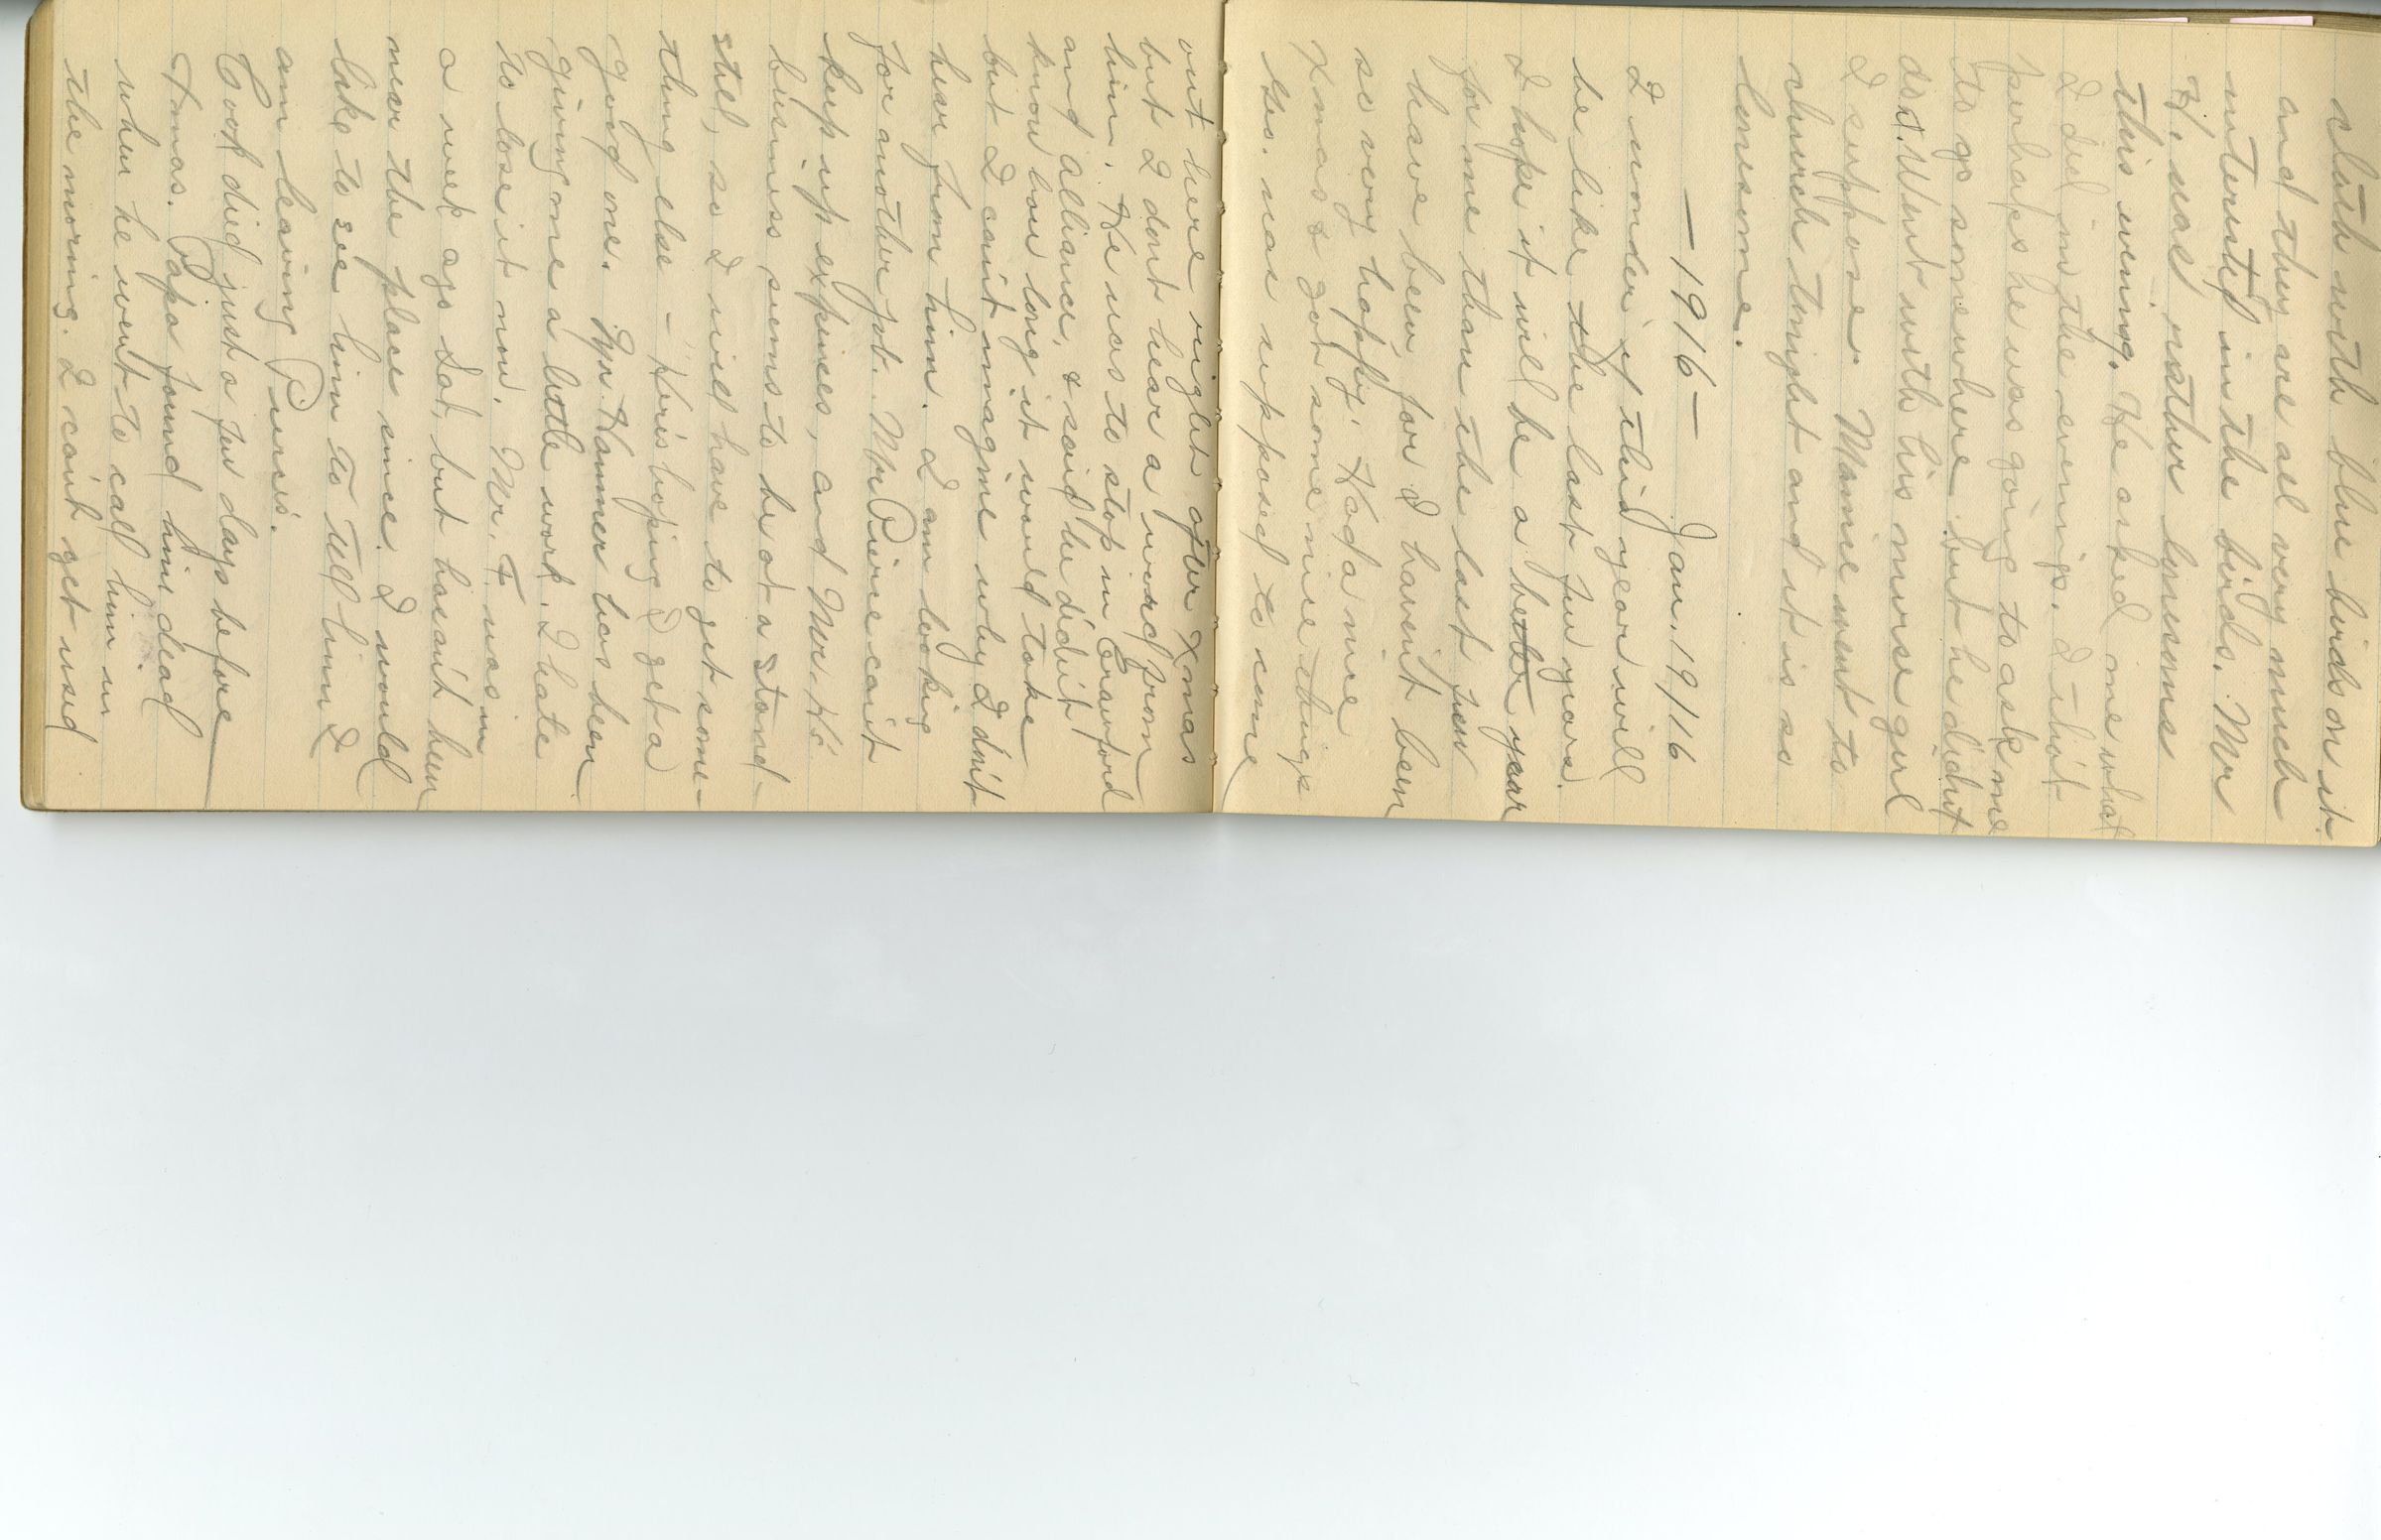 cloth with blue birds on it.
and they are all very much
interested in the birds. Mr
H. was rather lonesome
this evening. He asked me what
I did in the evenings. I thot
perhaps he was going to ask me
to go somewhere but he didnt
do it. Went with his nurse girl
I suppose. Mamie went to
church tonight and it is so
lonesome.
— 1916 —
Jan. 1916
I wonder if this year will
be like the last few years.
I hope it will be a better year
for me than the last few
have been, for I havent been
so very happy. Had a nice
Xmas & got some nice things
Geo. was supposed to come
out here right after Xmas
but I dont hear a word from
him. He was to stop in Crawford
and Alliance, & said he didn't
know how long it would take
but I can't imagine why I don't
hear from him. I am looking
for another job. Mr Pierce can't
keep up expenses, and Mr. H's
business seems to be at a stand-
still, so I will have to get some-
thing else - Here's hoping I get a
good one. Mr. Hanner has been
giving me a little work. I hate
to lose it now. Mr. F. was in
a week ago Sat. but hasn't been
near the place since. I would
like to see him to tell him I
am leaving Pierce's.
Cook died just a few days before
Xmas. Papa found him dead
when he went to call him in
the morning. I can't get used